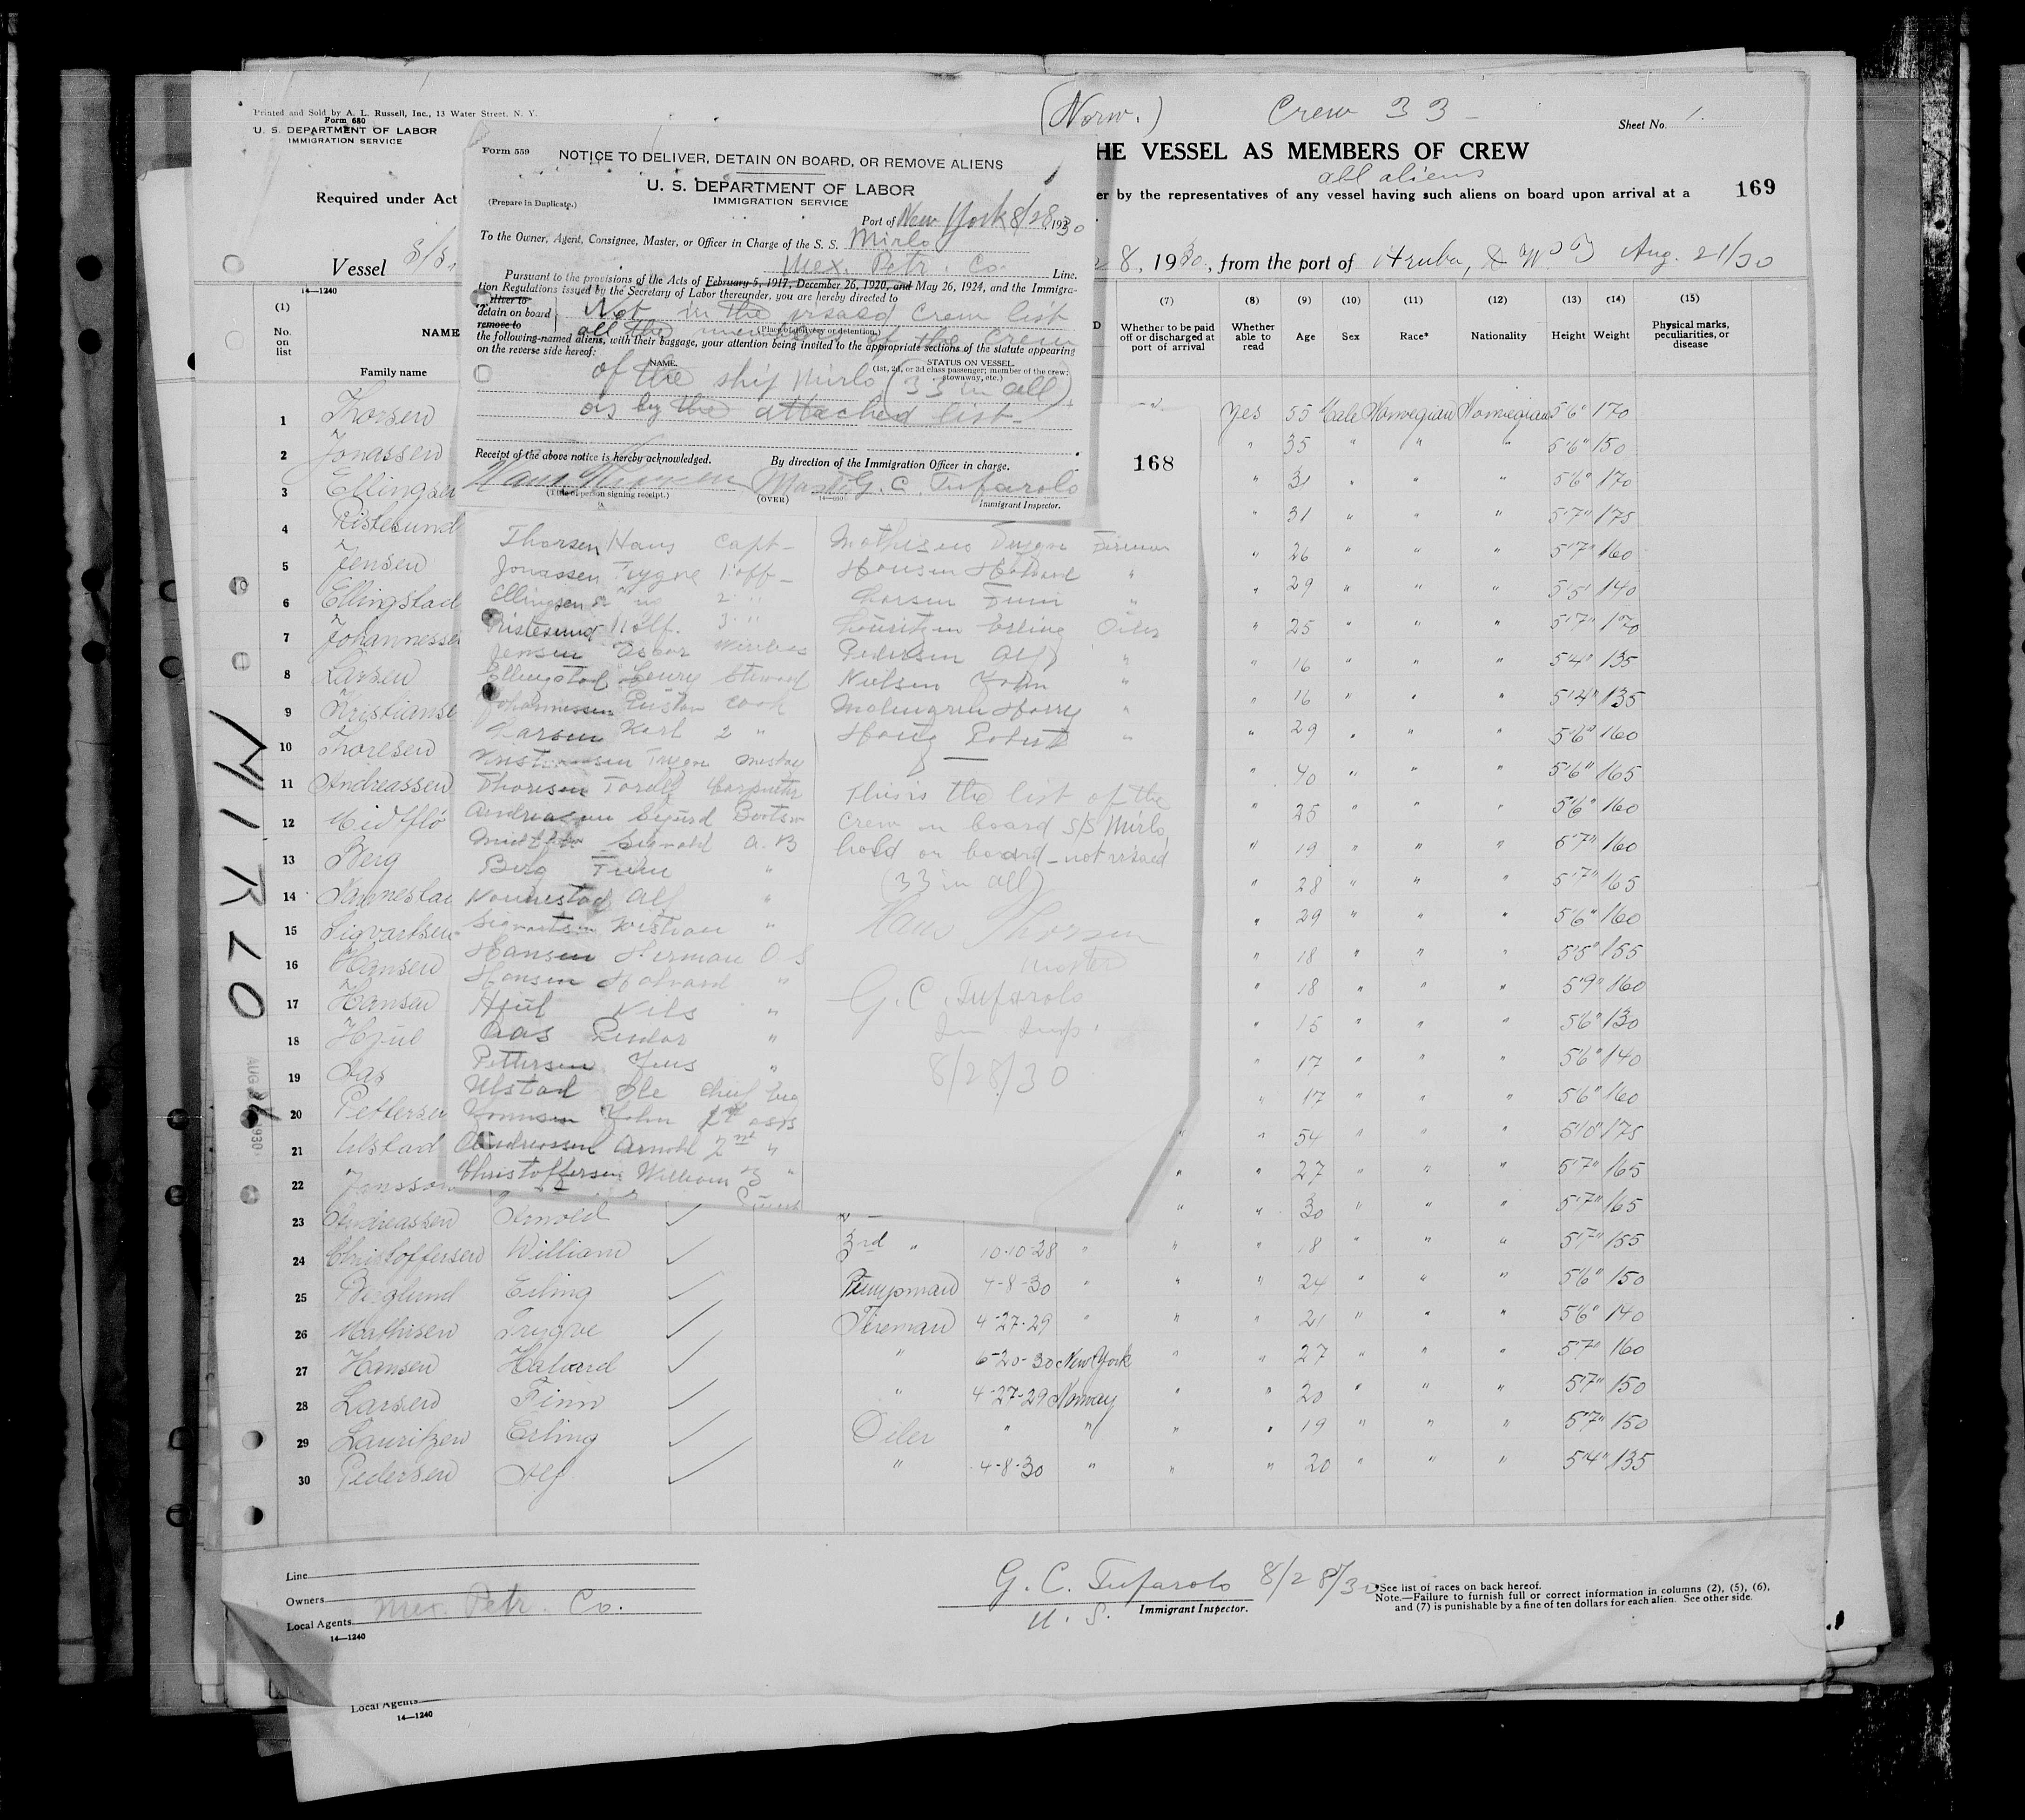 Printed and Sold by A. L. Russell, Inc., 13 Water Street. N. Y.
Form 680
U. S. DEPARTMENT OF LABOR
IMMIGRATION SERVICE
(Norw.)
Crew 33 -
Sheet No. 1.
HE VESSEL AS MEMBERS OF CREW
all aliens
Required under Act
er by the representatives of any vessel having such aliens on board upon arrival at a
169
Vessel S/S.
8, 1930, from the port of Aruba, D W I Aug. 21/30
14—1240
Form 559
NOTICE TO DELIVER, DETAIN ON BOARD, OR REMOVE ALIENS
U. S. DEPARTMENT OF LABOR
IMMIGRATION SERVICE
(Prepare in Duplicate.)
Port of New York 8/28, 1930
To the Owner, Agent, Consignee, Master, or Officer in Charge of the S. S. Mirlo
Mex. Petr. Co. Line.
Pursuant to the provisions of the Acts of February 5, 1917, December 26, 1920, and May 26, 1924, and the Immigra-
tion Regulations issued by the Secretary of Labor thereunder, you are hereby directed to
deliver to
detain on board
remove to
Not in the visaed crew list
(Place of delivery or detention.)
all the members of the crew
the following-named aliens, with their baggage, your attention being invited to the appropriate sections of the statute appearing
on the reverse side hereof:
NAME
STATUS ON VESSEL
(1st, 2d, or 3d class passenger; member of the crew;
stowaway, etc.)
of the ship Mirlo (33 in all)
as by the attached list-
Receipt of the above notice is hereby acknowledged.
By direction of the Immigration Officer in charge.
Hans Thorsen Mast.
G. C. Tufarolo
(Title of person signing receipt.)
(OVER)
Immigrant Inspector.
168
Thorsen Hans Capt-
Jonassen Trygve 1 off-
Ellingsen 2 "
Ristesund Rolf. 3 "
Jensen Oscar Wireless
Ellingstad Henry Steward
Johannessen Gustav Cook
Larsen Karl 2 "
Kristiansen Trygve Messboy
Thoresen Toralf Carpenter
Andreassen Sigurd Boatsw
Midtflø Sigvald A. B
Berg Finn "
Nonnestad Alf "
Sigvartsen Kristian "
Hansen Herman O S
Hansen Halvard "
Hjul Nils "
Aas Peudar "
Pettersen Jens "
Ulstad Ole Chief Eng
Jonnsen John 1st ass
Andreassen Arnold 2nd "
Christoffersen William 3 "
Mathisen Trygve Fireman
Hansen Halvard "
Larsen Finn "
Lauritzen Erling Oiler
Pedersen Alf "
Nielsen John "
Malmgren Harry "
Haug Robert "
This is the list of the
crew on board S/S Mirlo,
hold on board - not visaed
(33 in all)
Hans Thorsen
Master
G. C. Tufarolo
Im Insp.
8/28/30
(1)
No. on list
NAME
Family name
(7)
Whether to be paid off or discharged at port of arrival
(8)
Whether able to read
(9)
Age
(10)
Sex
(11)
Race*
(12)
Nationality
(13)
Height
(14)
Weight
(15)
Physical marks, peculiarities, or disease
1 Thorsen Yes 55 Male Norwegian Norwegian 5'6" 170
2 Jonassen " 35 " " " 5'6" 150
3 Ellingsen " 31 " " " 5'6" 170
4 Ristesund " 31 " " " 5'7" 175
5 Jensen " 26 " " " 5'7" 160
6 Ellingstad " 29 " " " 5'5" 140
7 Johannesse " 25 " " " 5'7" 170
8 Larsen " 16 " " " 5'4" 135
9 Kristianse " 16 " " " 5'4" 135
10 Thoresen " 29 " " " 5'6" 160
11 Andreassen " 40 " " " 5'6" 165
12 Midtflø " 25 " " " 5'6" 160
13 Berg " 19 " " " 5'7" 160
14 Nannestad " 28 " " " 5'7" 165
15 Sigvartsen " 29 " " " 5'6" 160
16 Hansen " 18 " " " 5'5" 155
17 Hansen " 18 " " " 5'9" 160
18 Hjul " 15 " " " 5'6" 130
19 Aas " 17 " " " 5'6" 140
20 Pettersen " 17 " " " 5'6" 160
21 Ulstad " " 54 " " " 5'10" 175
22 Jonsson " " 27 " " " 5'7" 165
23 Andreassen Arnold " " 30 " " " 5'7" 165
24 Christoffersen William 3rd " 10-10-28 " " " 18 " " " 5'7" 155
25 Berglund Erling Pumpman 4-8-30 " " " 24 " " " 5'6" 150
26 Mathisen Trygve Fireman 4-27-29 " " " 21 " " " 5'6" 140
27 Hansen Halvard " 6-20-30 New York " " 27 " " " 5'7" 160
28 Larsen Finn " 4-27-29 Norway " " 20 " " " 5'7" 150
29 Lauritzen Erling Oiler " " " " 19 " " " 5'7" 150
30 Pedersen Alf " 4-8-30 " " " 20 " " " 5'4" 135
MIRLO
AUG 28 1930
Line
Owners
Local Agents Mex. Petr. Co.
14—1240
G. C. Tufarolo 8/28/30
U. S. Immigrant Inspector.
*See list of races on back hereof.
Note.—Failure to furnish full or correct information in columns (2), (5), (6),
and (7) is punishable by a fine of ten dollars for each alien. See other side.
Local Agents
14—1240